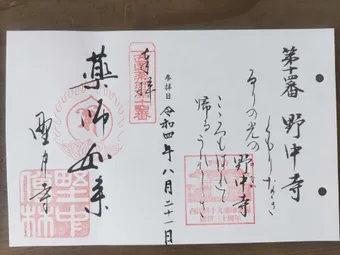 第十四番 野中寺
くもりなき
るりの光の野中寺
こころもはれて
帰るうれしさ
参拝日 令和四年八月二十一日
奉拝
西国薬師第十四番
薬師如来
野中寺